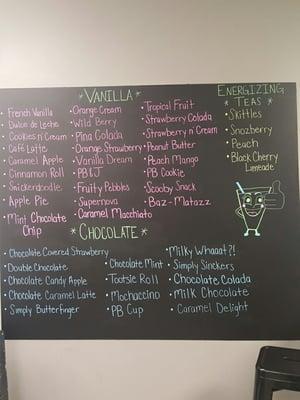 * VANILLA *
• French Vanilla
• Dulce de Leche
• Cookies n' Cream
• Café Latte
• Caramel Apple
• Cinnamon Roll
• Snickerdoodle
• Apple Pie
• Mint Chocolate
Chip
• Orange Cream
• Wild Berry
• Pina Colada
• Orange Strawberry
• Vanilla Dream
• PB&J
• Fruity Pebbles
• Supernova
• Caramel Macchiato
• Tropical Fruit
• Strawberry Colada
• Strawberry n' Cream
• Peanut Butter
• Peach Mango
• PB Cookie
• Scooby Snack
• Baz-Matazz
ENERGIZING
* TEAS *
• Skittles
• Snozberry
• Peach
• Black Cherry
Limeade
* CHOCOLATE *
• Chocolate Covered Strawberry
• Double Chocolate
• Chocolate Candy Apple
• Chocolate Caramel Latte
• Simply Butterfinger
• Chocolate Mint
• Tootsie Roll
• Mochaccino
• PB Cup
• Milky Whaaat?!
• Simply Snickers
• Chocolate Colada
• Milk Chocolate
• Caramel Delight